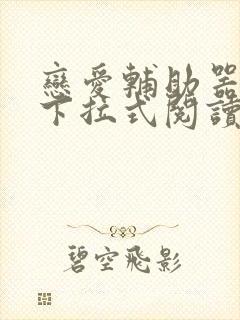 戀愛輔助器
下拉式閱讀
碧空飛影